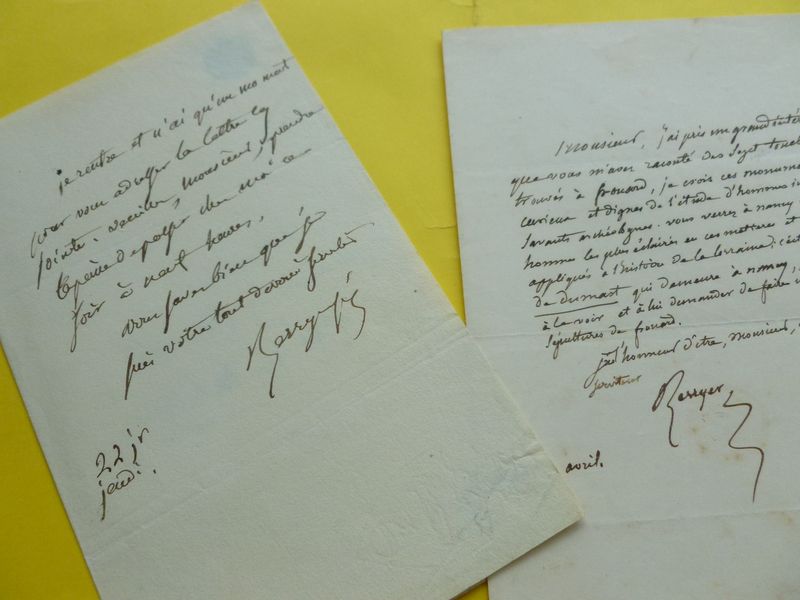 je rentre et n'ai qu'un moment
pour vous adresser la lettre cy
jointe. veuillez, monsieur, prendre
la peine de passer chez moi ce
soir à neuf heures,
vous savez bien que je
suis votre tout dévoué
Berryer
22 jr
jeudi.
Monsieur, j'ai pris un grand intér
que vous m'avez raconté des
trouvés à frouard, je crois ces monume
curieux et dignes de l'étude d'hommes
savants archéologues. vous verrez à nancy
homme les plus éclairés en ces matières et
appliqué à l'histoire de la lorraine; c'est
de dumast qui demeure à nancy,
à le voir et à lui demander de faire
sépultures de frouard.
j'ai l'honneur d'être, monsieur,
serviteur
Berryer
avril.